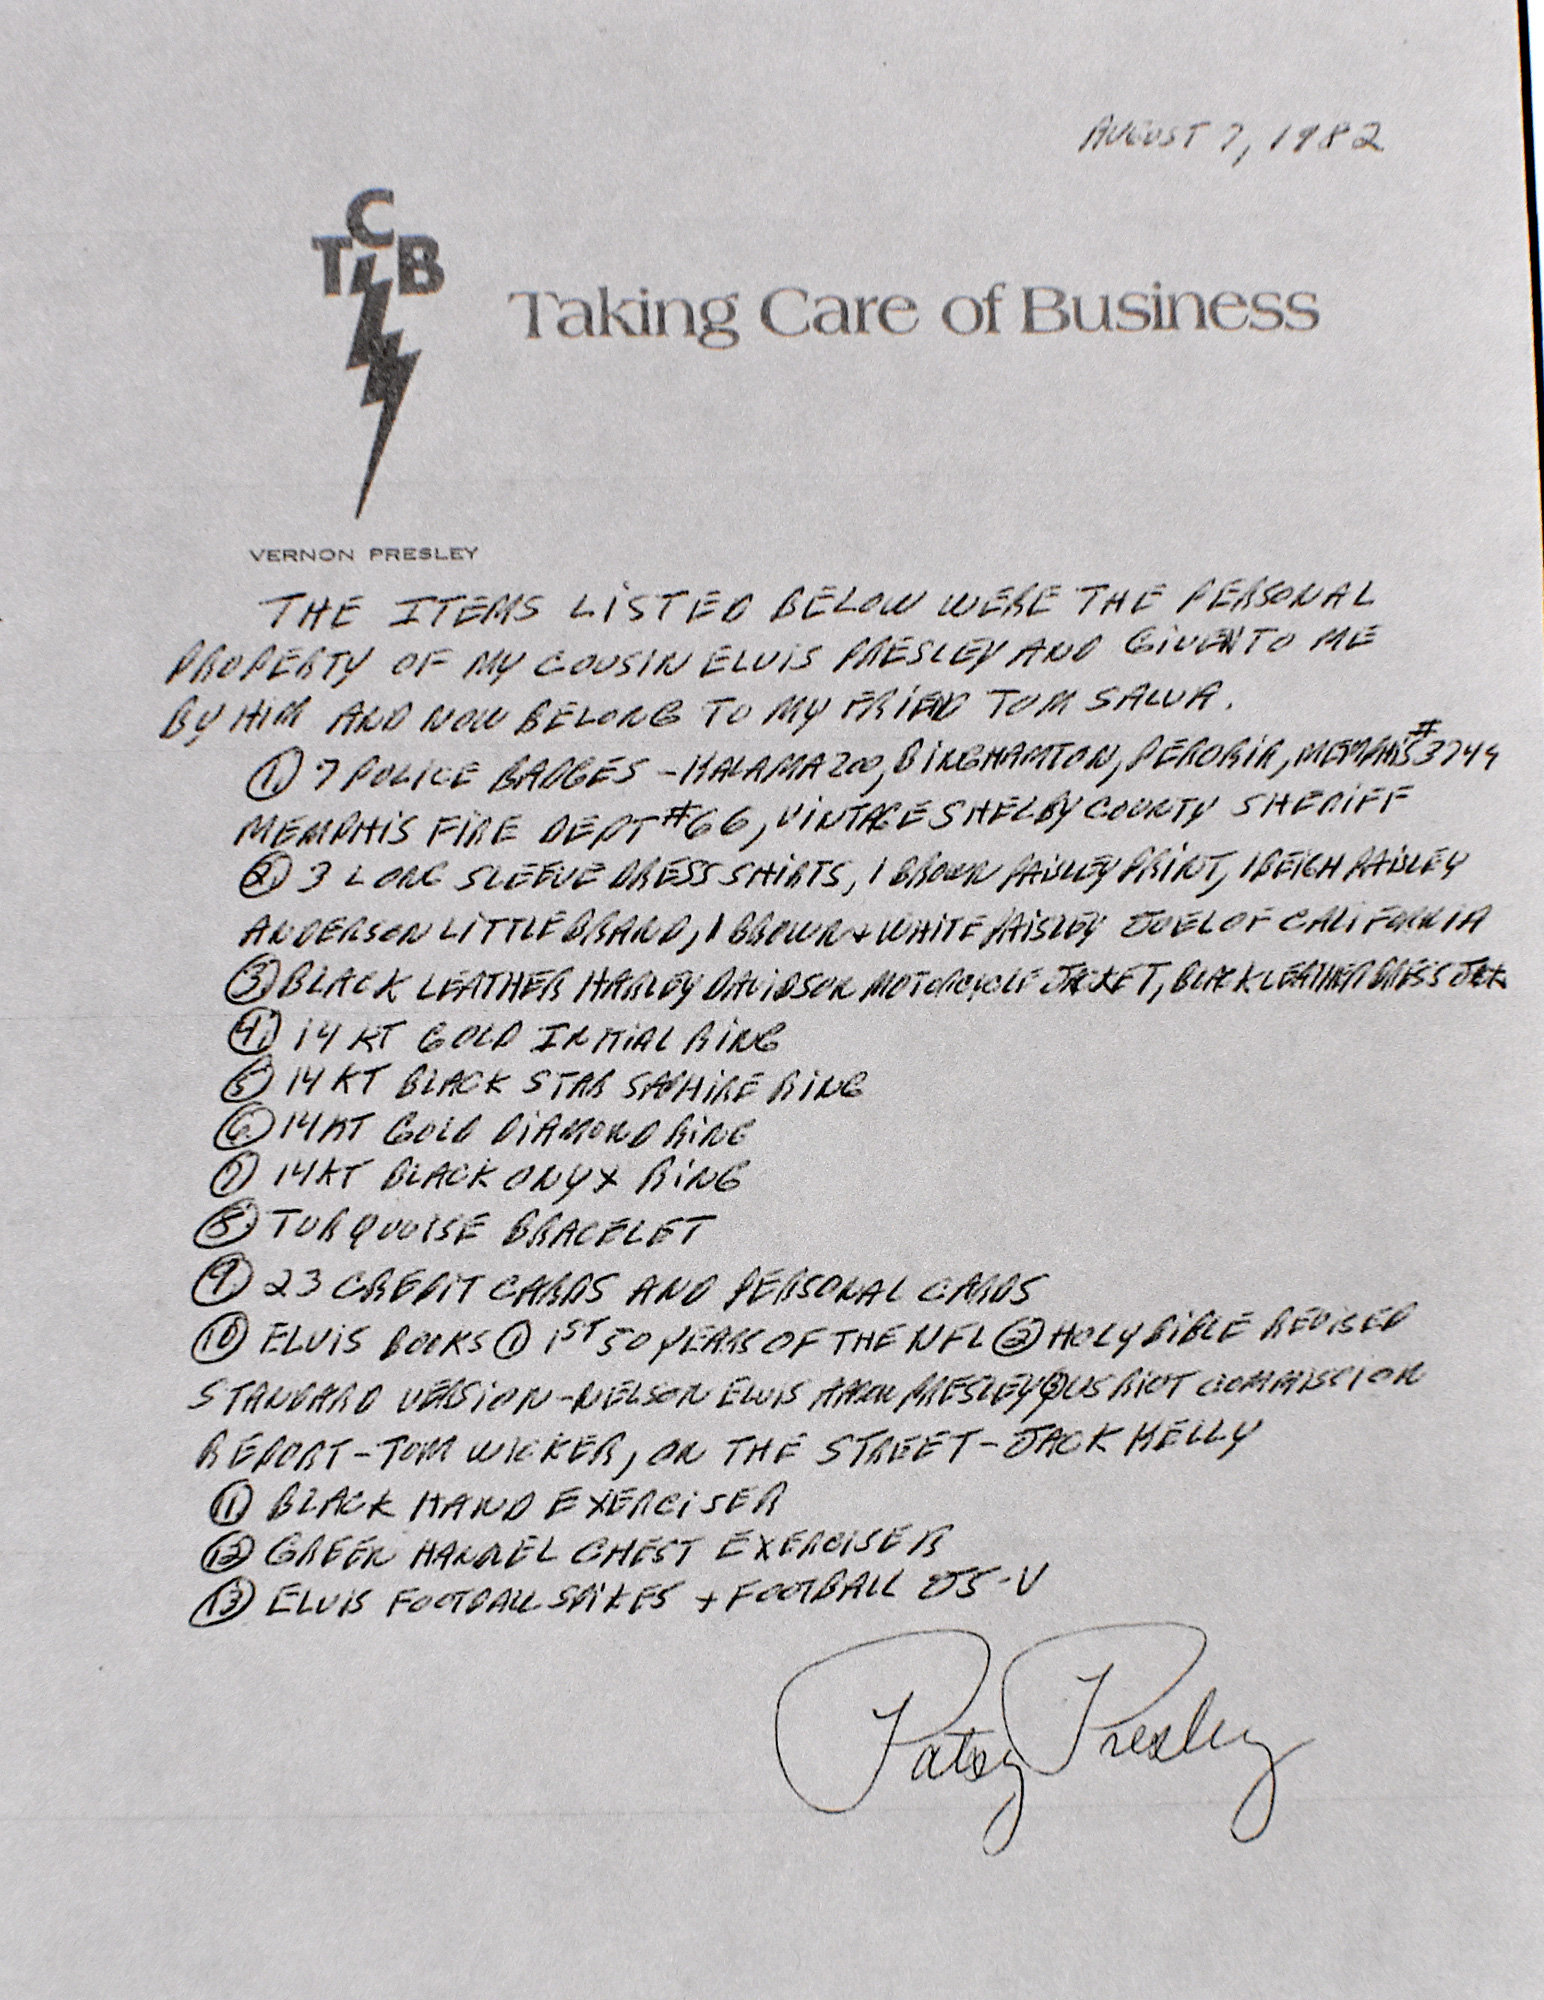 AUGUST 7, 1982
TCB
Taking Care of Business
VERNON PRESLEY
THE ITEMS LISTED BELOW WERE THE PERSONAL
PROPERTY OF MY COUSIN ELVIS PRESLEY AND GIVEN TO ME
BY HIM AND NOW BELONG TO MY FRIEND TOM SALVA.
1. 7 POLICE BADGES - KALAMAZOO, BINGHAMTON, PERORIA, MEMPHIS #3744
MEMPHIS FIRE DEPT #66, VINTAGE SHELBY COUNTY SHERIFF
2. 3 LONG SLEEVE DRESS SHIRTS, 1 BROWN PAISLEY PRINT, 1 BEIGH PAISLEY
ANDERSON LITTLE BRAND, 1 BROWN + WHITE PAISLEY JOEL OF CALIFORNIA
3. BLACK LEATHER HARLEY DAVIDSON MOTORCYCLE JACKET, BLACK LEATHER DRESS
4. 14 KT GOLD INITIAL RING
5. 14 KT BLACK STAR SAPHIRE RING
6. 14 KT GOLD DIAMOND RING
7. 14 KT BLACK ONYX RING
8. TURQUOISE BRACELET
9. 23 CREDIT CARDS AND PERSONAL CARDS
10 ELVIS BOOKS 1 1ST 50 YEARS OF THE NFL 2 HOLY BIBLE REVISED
STANDARD VERSION - NELSON ELVIS AARON PRESLEY 3 US RIOT COMMISSION
REPORT - TOM WICKER, ON THE STREET - JACK KELLY
11 BLACK HAND EXERCISER
12 GREEN HANDEL CHEST EXERCISER
13 ELVIS FOOTBALL SPIKES + FOOTBALL J5-V
Patsy Presley